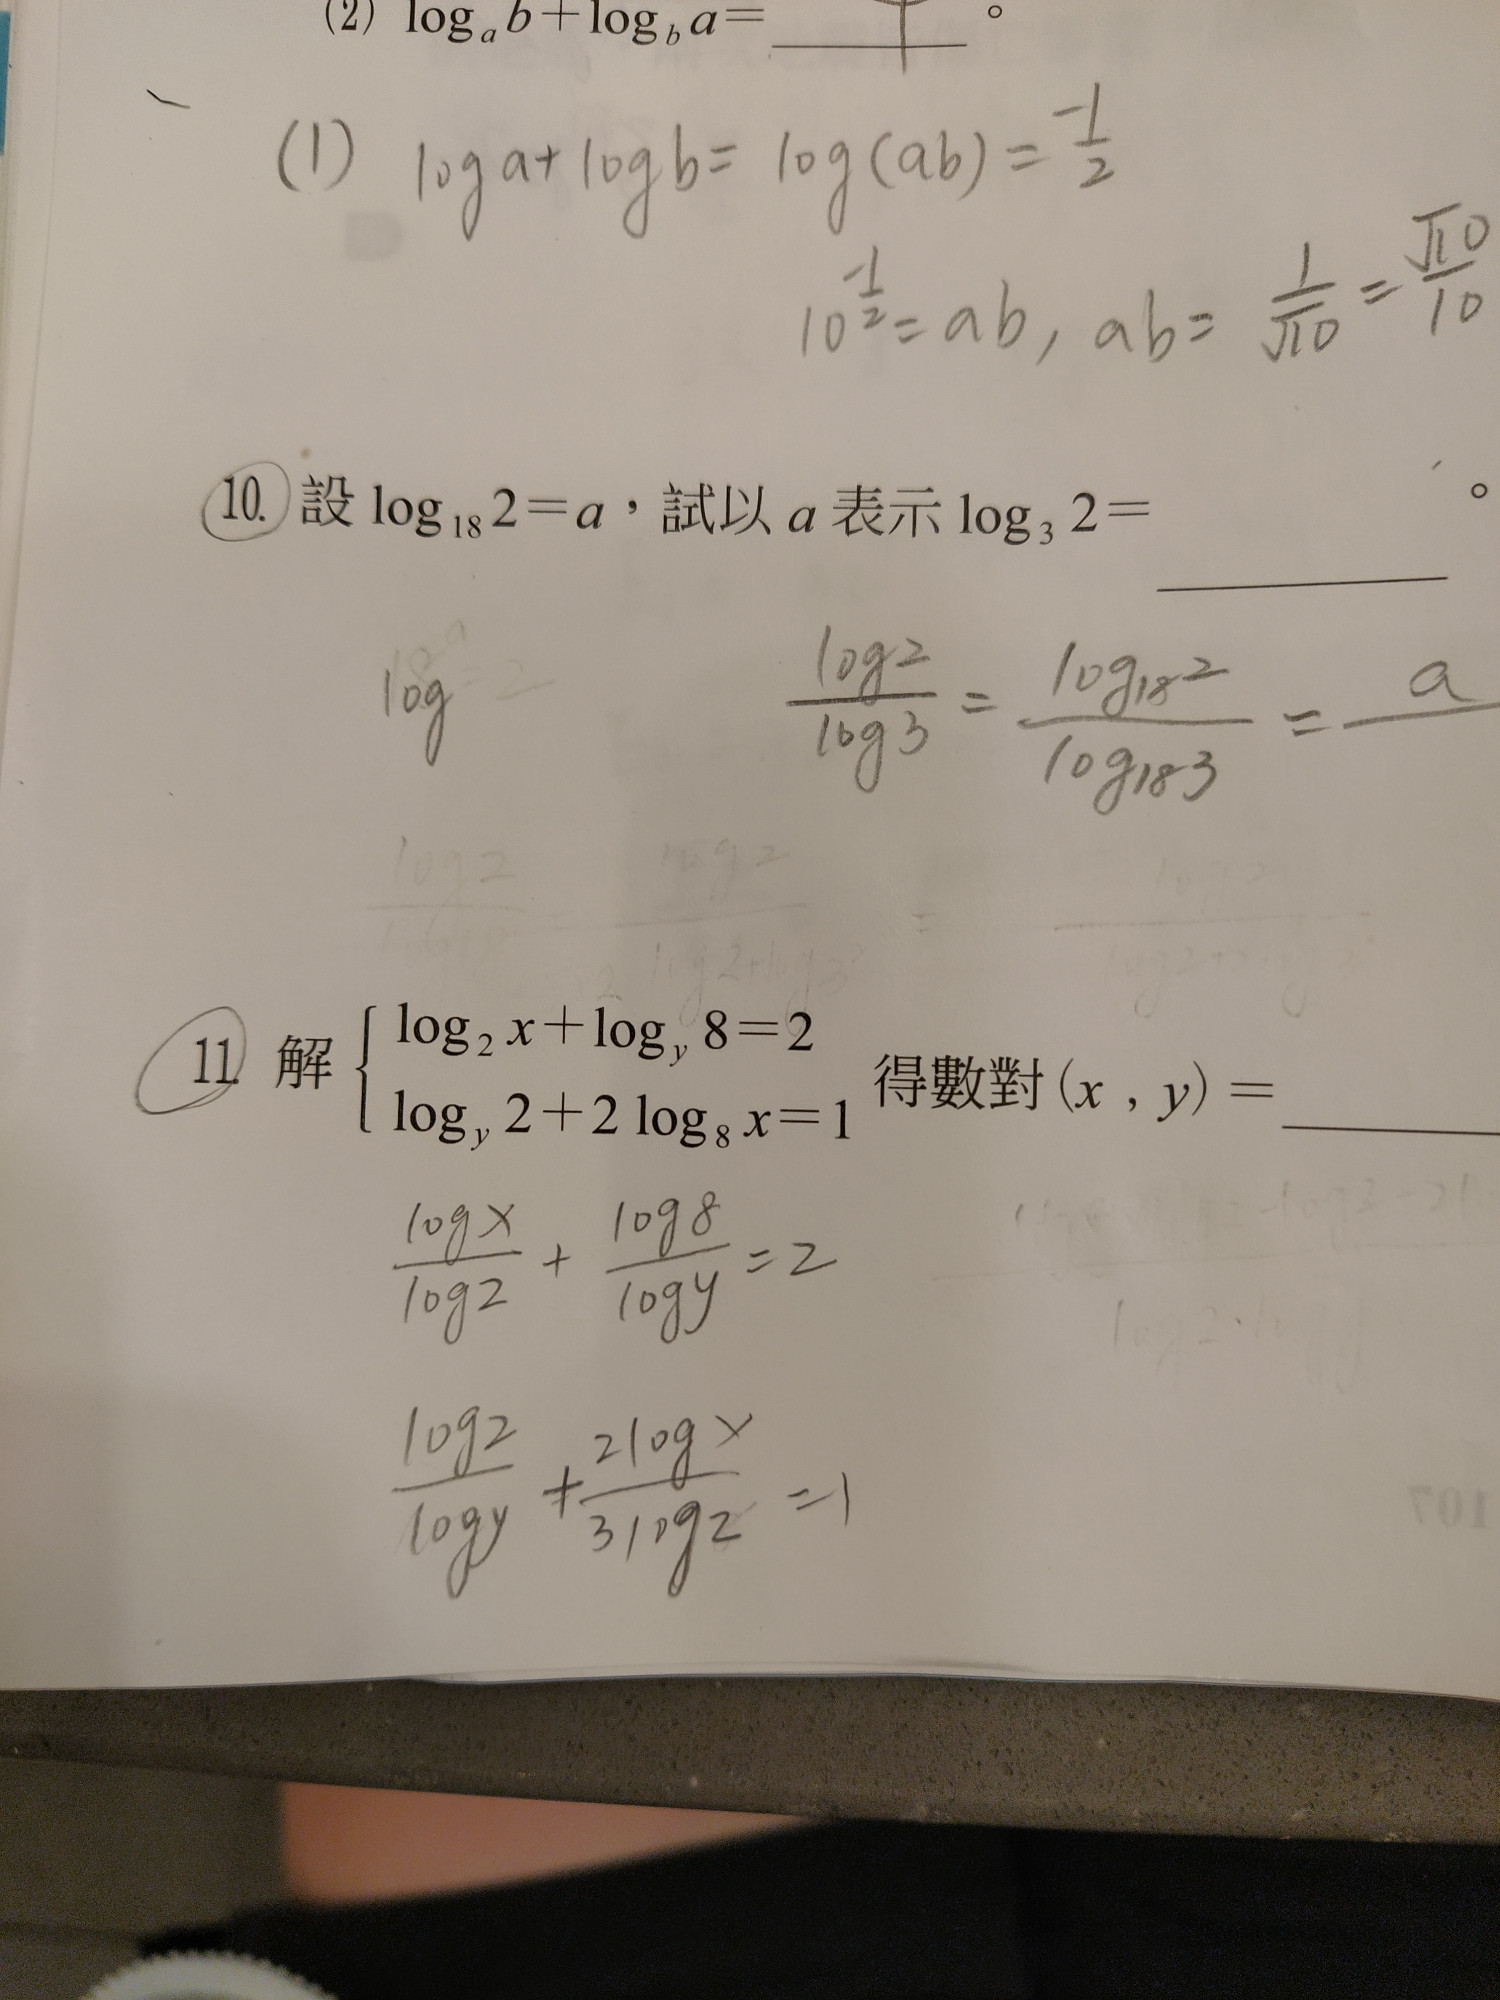 (2) log_a b+log_b a=______。
(1) log a+log b= log(ab)=-1/2
10^(-1/2)=ab, ab=1/√10=√10/10
10. 設 log_18 2=a，試以 a 表示 log_3 2=______。
log
log2/log3=log_18 2/log_18 3=a/
11. 解{log_2 x+log_y 8=2
log_y 2+2 log_8 x=1 得數對(x , y)=______
logx/log2+log8/logy=2
log2/logy+2logx/3log2=1
107